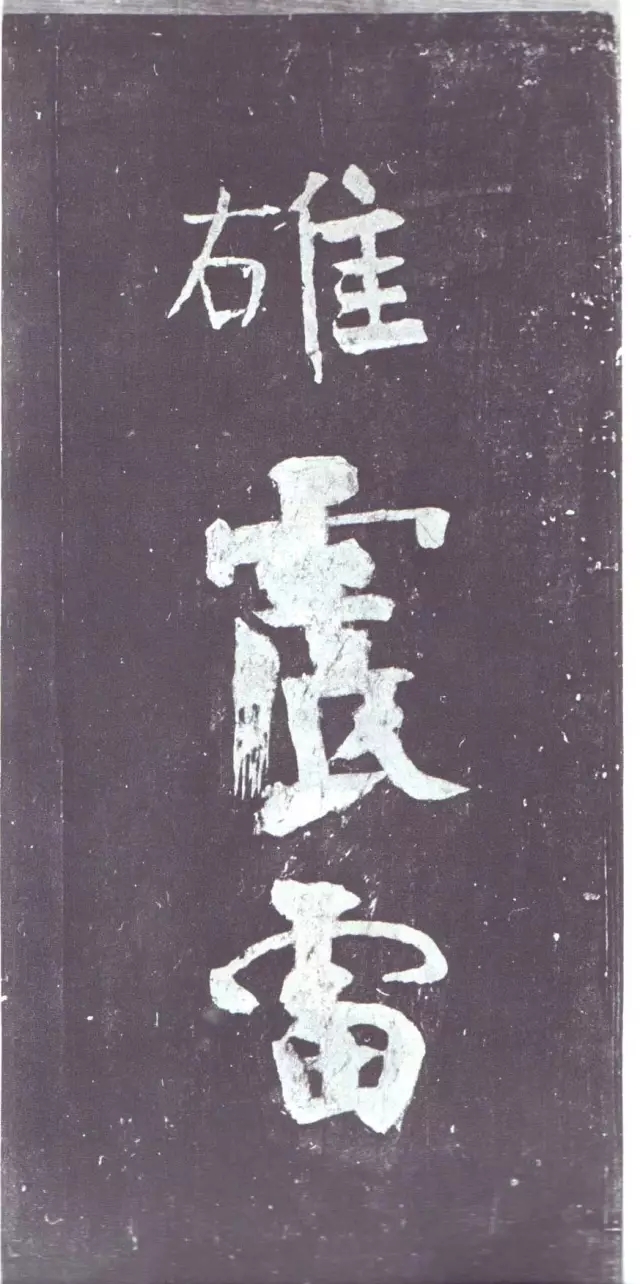 雄
震
雷